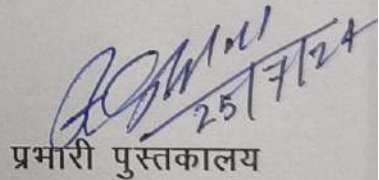 25/7/24
प्रभारी पुस्तकालय